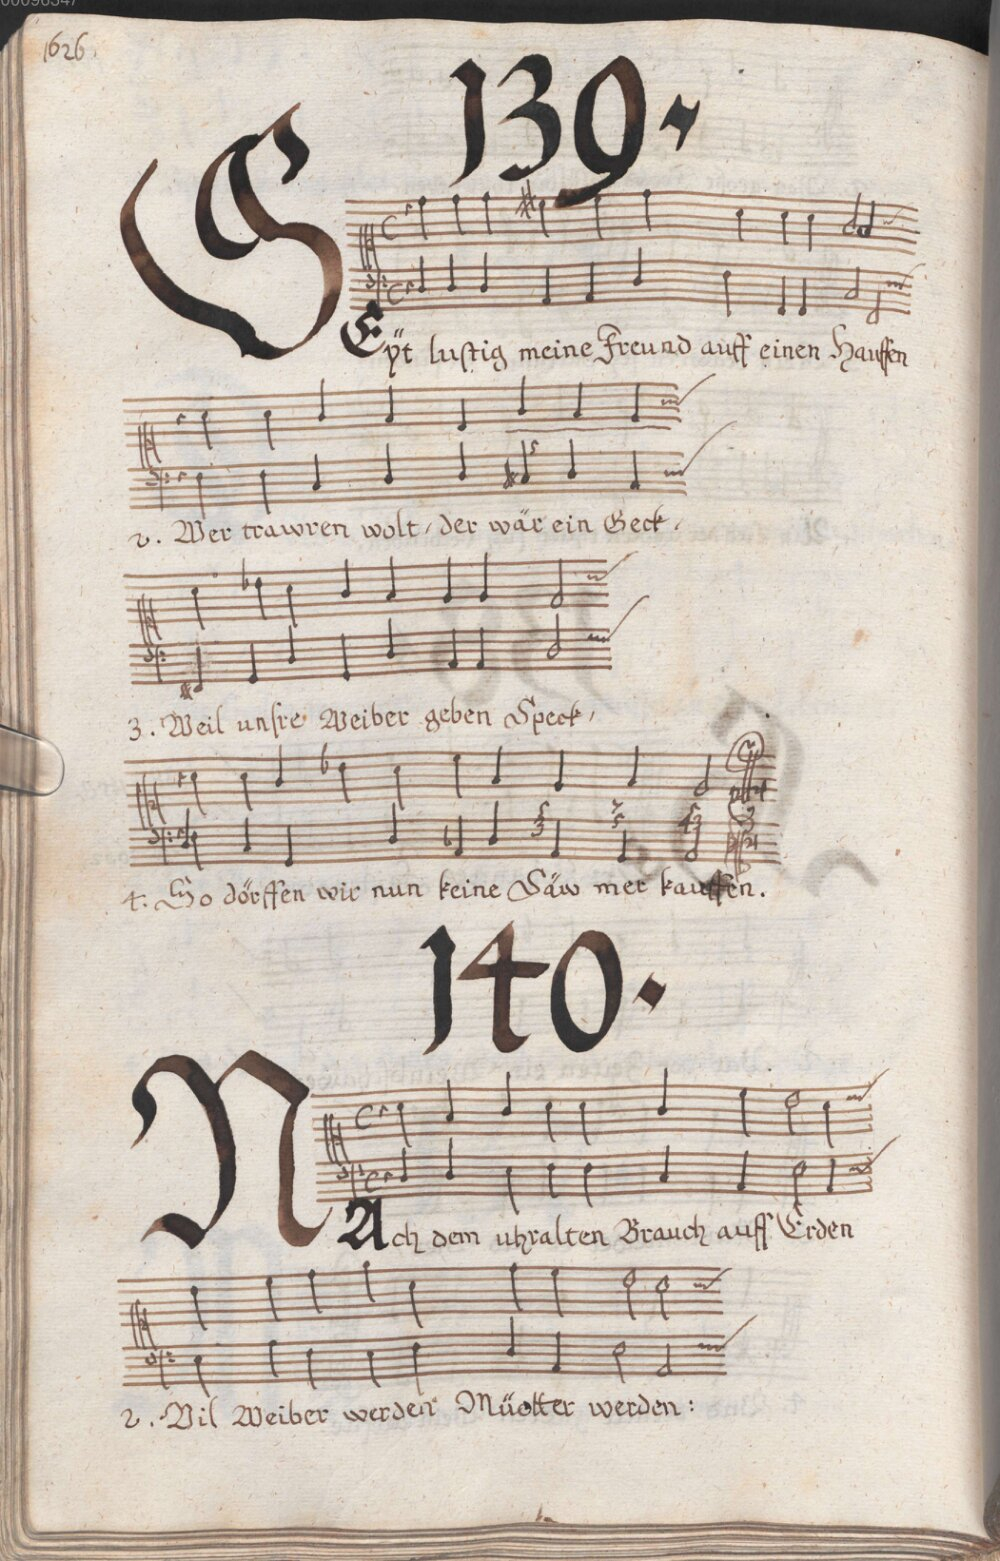 00096347
1626.
139.
SEÿt lustig meine Freund auff einen Hauffen
2. Wer trawren wolt, der wär ein Geck,
3. Weil unsre Weiber geben Speck,
4. So dörffen wir nun keine Säw mer kauffen.
140.
NAch dem uhralten Brauch auff Erden
2. Vil Weiber werden Müetter werden: